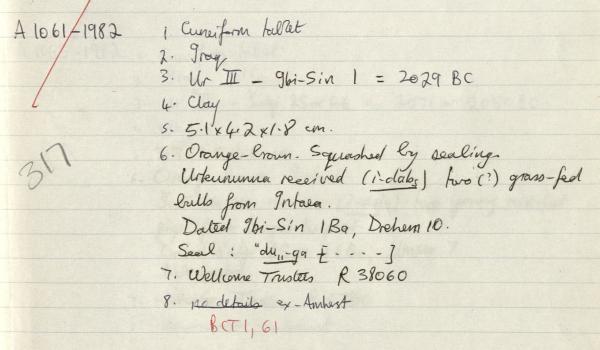 A 1061-1982 1. Cuneiform tablet
2. Iraq
3. Ur III - Ibi-Sin 1 = 2029 BC
4. Clay
5. 5.1 x 4.2 x 1.8 cm.
317
6. Orange-brown. Squashed by sealing.
Urkununna received (i-dab₅) two (?) grass-fed
bulls from Intaea.
Dated Ibi-Sin 1Ba, Drehem 10.
Seal : "du₁₁-ga [- - - -]
7. Wellcome Trustees R 38060
8. no details ex-Amherst
BCT 1, 61